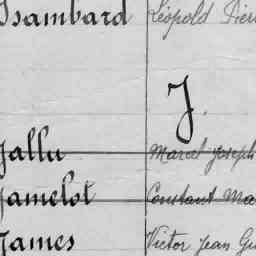 Isambard Léopold Pier
J.
Jallu Marcel Joseph
Jamelot Constant Ma
James Victor Jean Gu